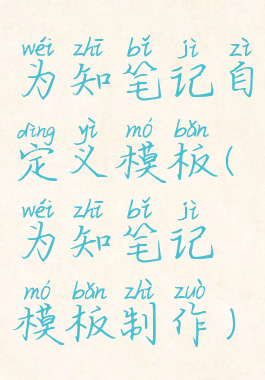 wéi zhī bǐ jì zì
为知笔记自
dìng yì mó bǎn
定义模板(
wéi zhī bǐ jì
为知笔记
mó bǎn zhì zuò
模板制作)